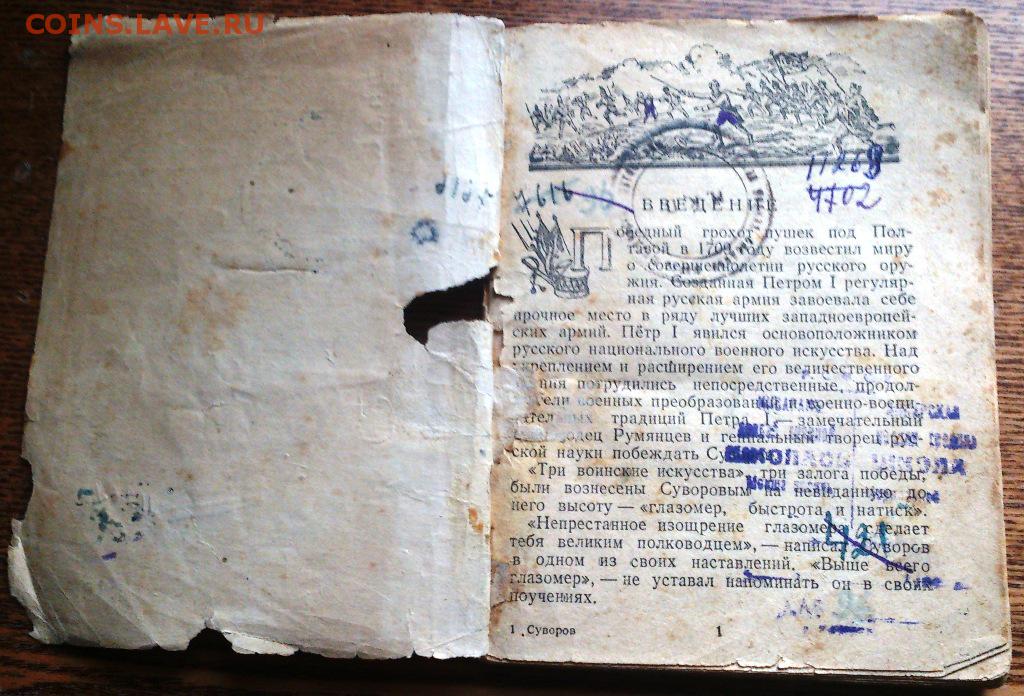 COINS.LAVE.RU
11268
7616
4702
ВВЕДЕНИЕ
Победный грохот пушек под Пол-
тавой в 1709 году возвестил миру
о совершеннолетии русского ору-
жия. Созданная Петром I регуляр-
ная русская армия завоевала себе
прочное место в ряду лучших западноевропей-
ских армий. Пётр I явился основоположником
русского национального военного искусства. Над
укреплением и расширением его величественного
потрудились непосредственные, продол-
жатели военных преобразований и военно-воспи-
тательных традиций Петра I — замечательный
полководец Румянцев и гениальный творец рус-
ской науки побеждать Суворов.
«Три воинские искусства», три залога победы,
были вознесены Суворовым на невиданную до
него высоту — «глазомер, быстрота и натиск».
«Непрестанное изощрение глазомера сделает
тебя великим полководцем», — написал Суворов
в одном из своих наставлений. «Выше всего
глазомер», — не уставал напоминать он в своих
поучениях.
ШКОЛА
421
1 Суворов 1